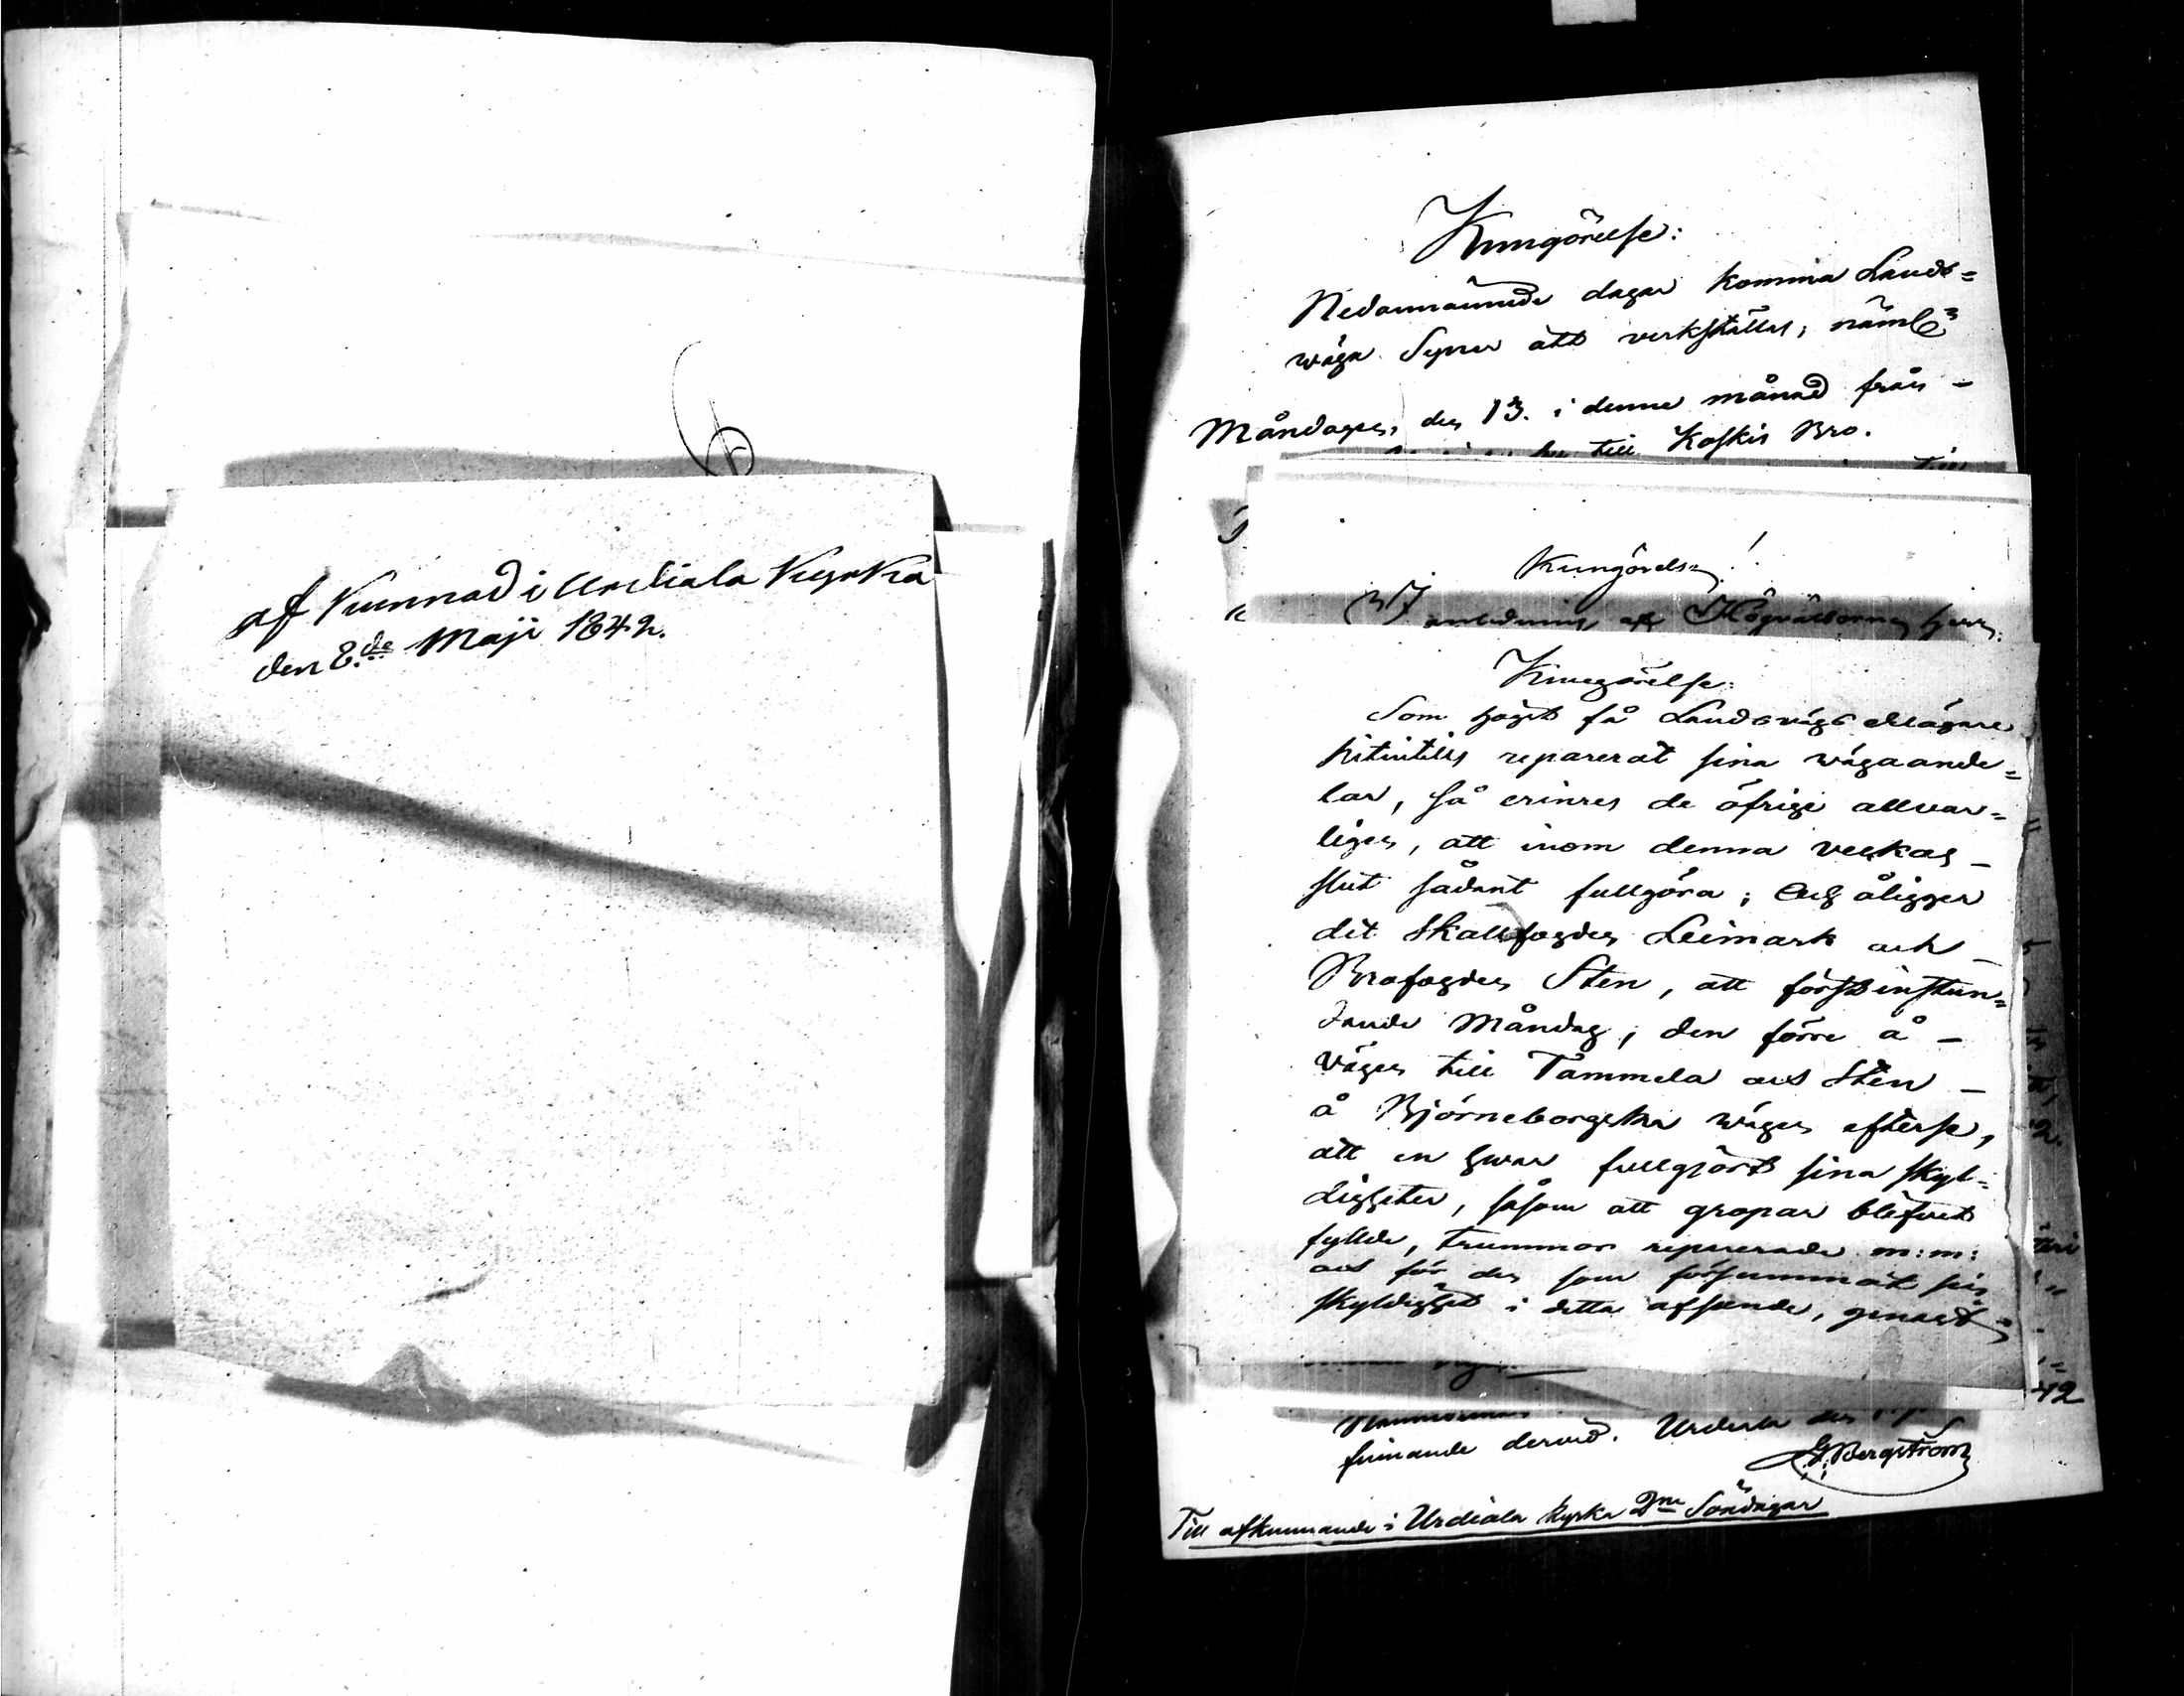 af Kunnad i Urdiala Kyrka
den 8.de Maji 1842.
Kungörelse:
Nedannämnde dagar komma Lands=
wäga Syner att verkställas, näml:n
Måndagen den 13. i denne månad från -
till Koskis Bro.
Kungörelse!
I anledning af Högvälborne Herr
Kungörelse:
Som högst få Landsvägs elägare
hitintills reparerat sina wägaande=
lar, så erinres de öfrige allvar=
ligen, att inom denna veckas -
slut sådant fullgöra; Och åligger
det Skallfogden Leimark och -
Brofogden Sten, att förstinstun=
dande Måndag, den förre å -
Vägen till Tammela och Sten -
å Björneborgska wägen efterse,
att en hwar fullgjort sina skyl=
digheter, såsom att gropar blifvit
fyllde, trummor reparerade m:m:
och för den som försummat sin
skyldighet i detta afseende, genast
42
finnande dervid. Urdiala den
G: Bergström
Till afkunnande i Urdiala kyrka 2ne Söndagar